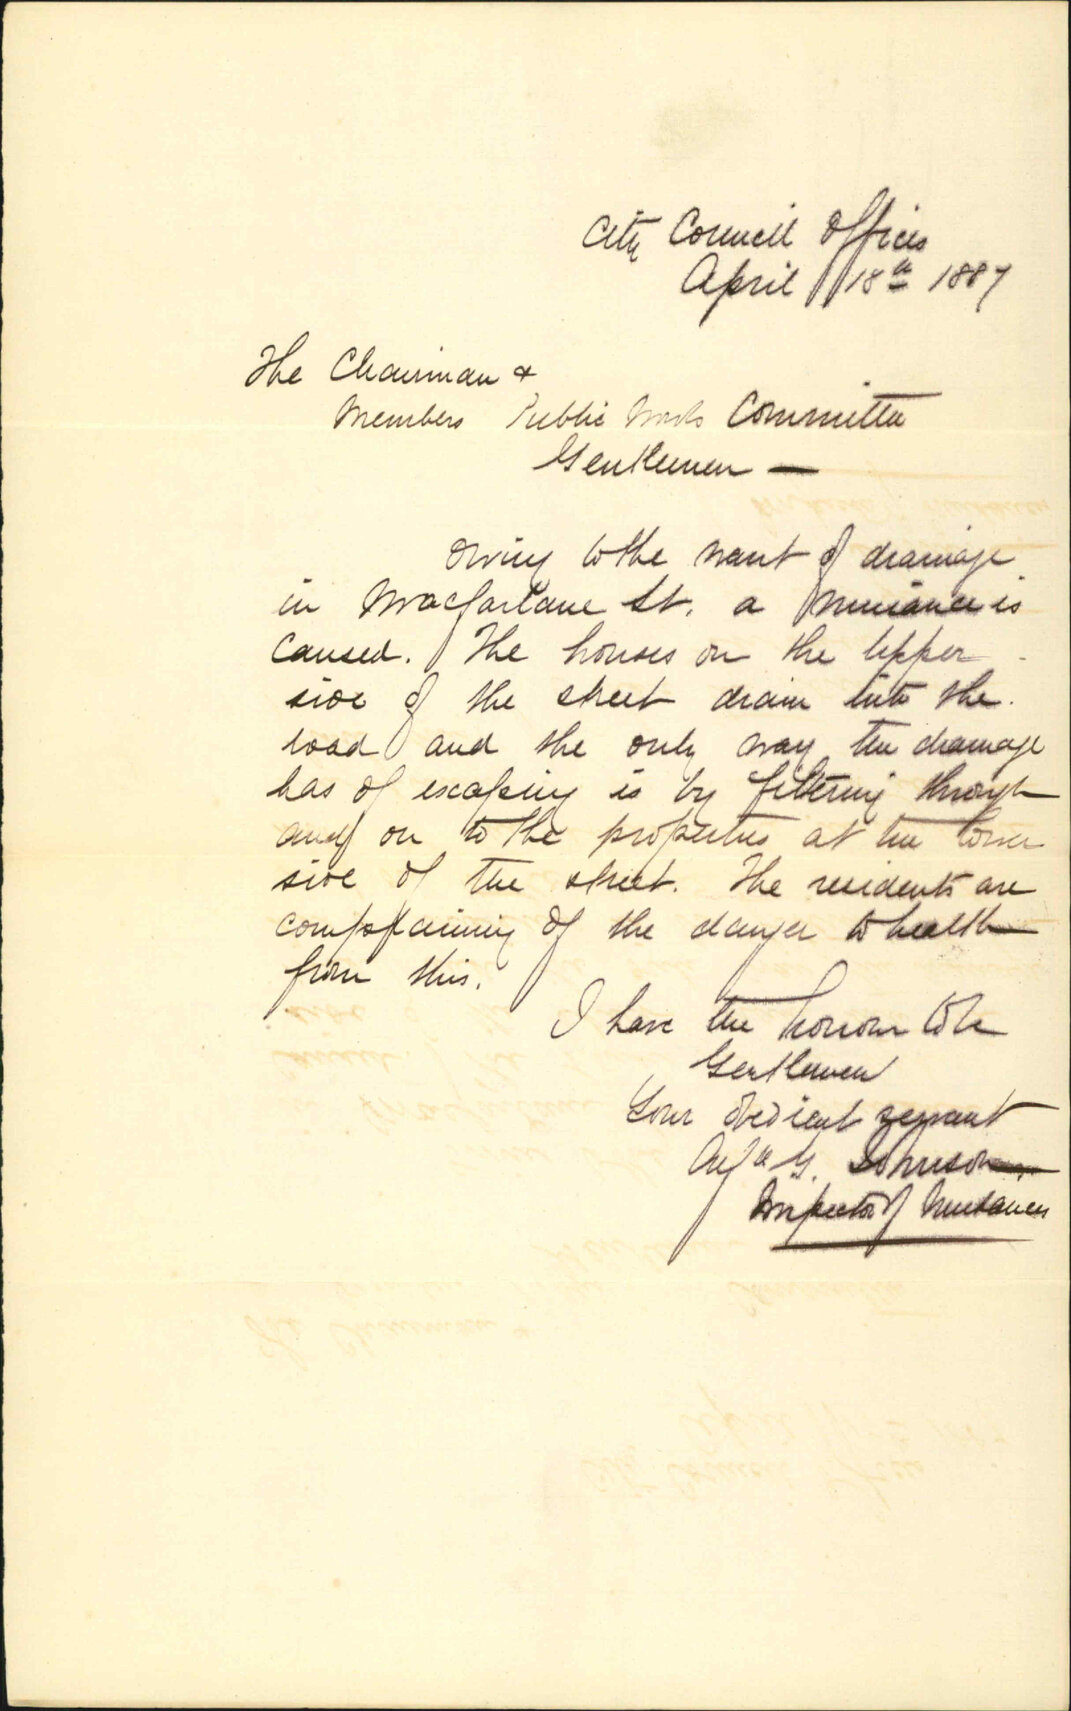 City Council Offices
April 18th 1887
The Chairman &
Members Public Works Committee
Gentlemen —
Owing to the want of drainage
in Macfarlane St. a nuisance is
caused. The houses on the upper
side of the street drain into the
road and the only way the drainage
has of escaping is by filtering through
and on to the properties at the lower
side of the street. The residents are
complaining of the danger to health
from this.
I have the honour to be
Gentlemen
Your obedient servant
G. Johnson
Inspector of Nuisances